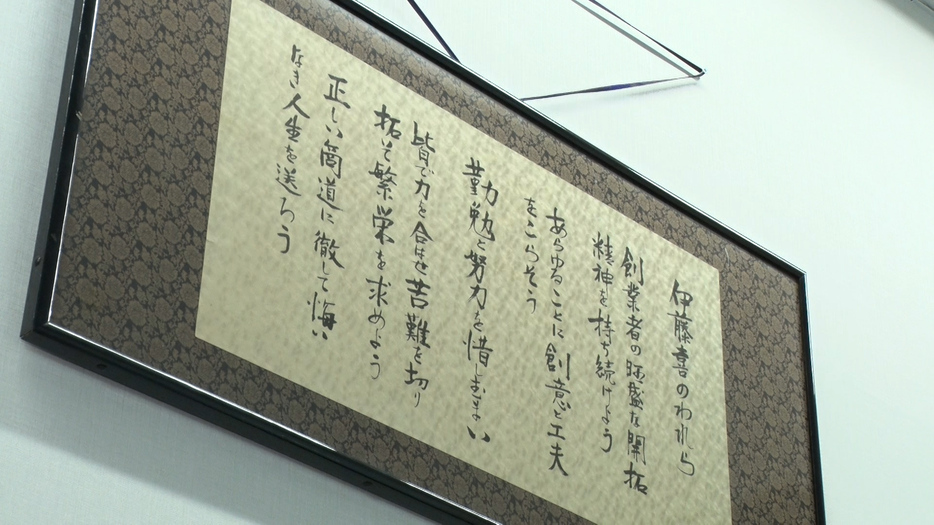 伊藤喜のわれら
創業者の旺盛な開拓
精神を持ち続けよう
あらゆることに創意と工夫
をこらそう
勤勉と努力を惜しむまい
皆で力を合はせ苦難を切り
拓き繁栄を求めよう
正しい商道に徹して悔い
なき人生を送ろう